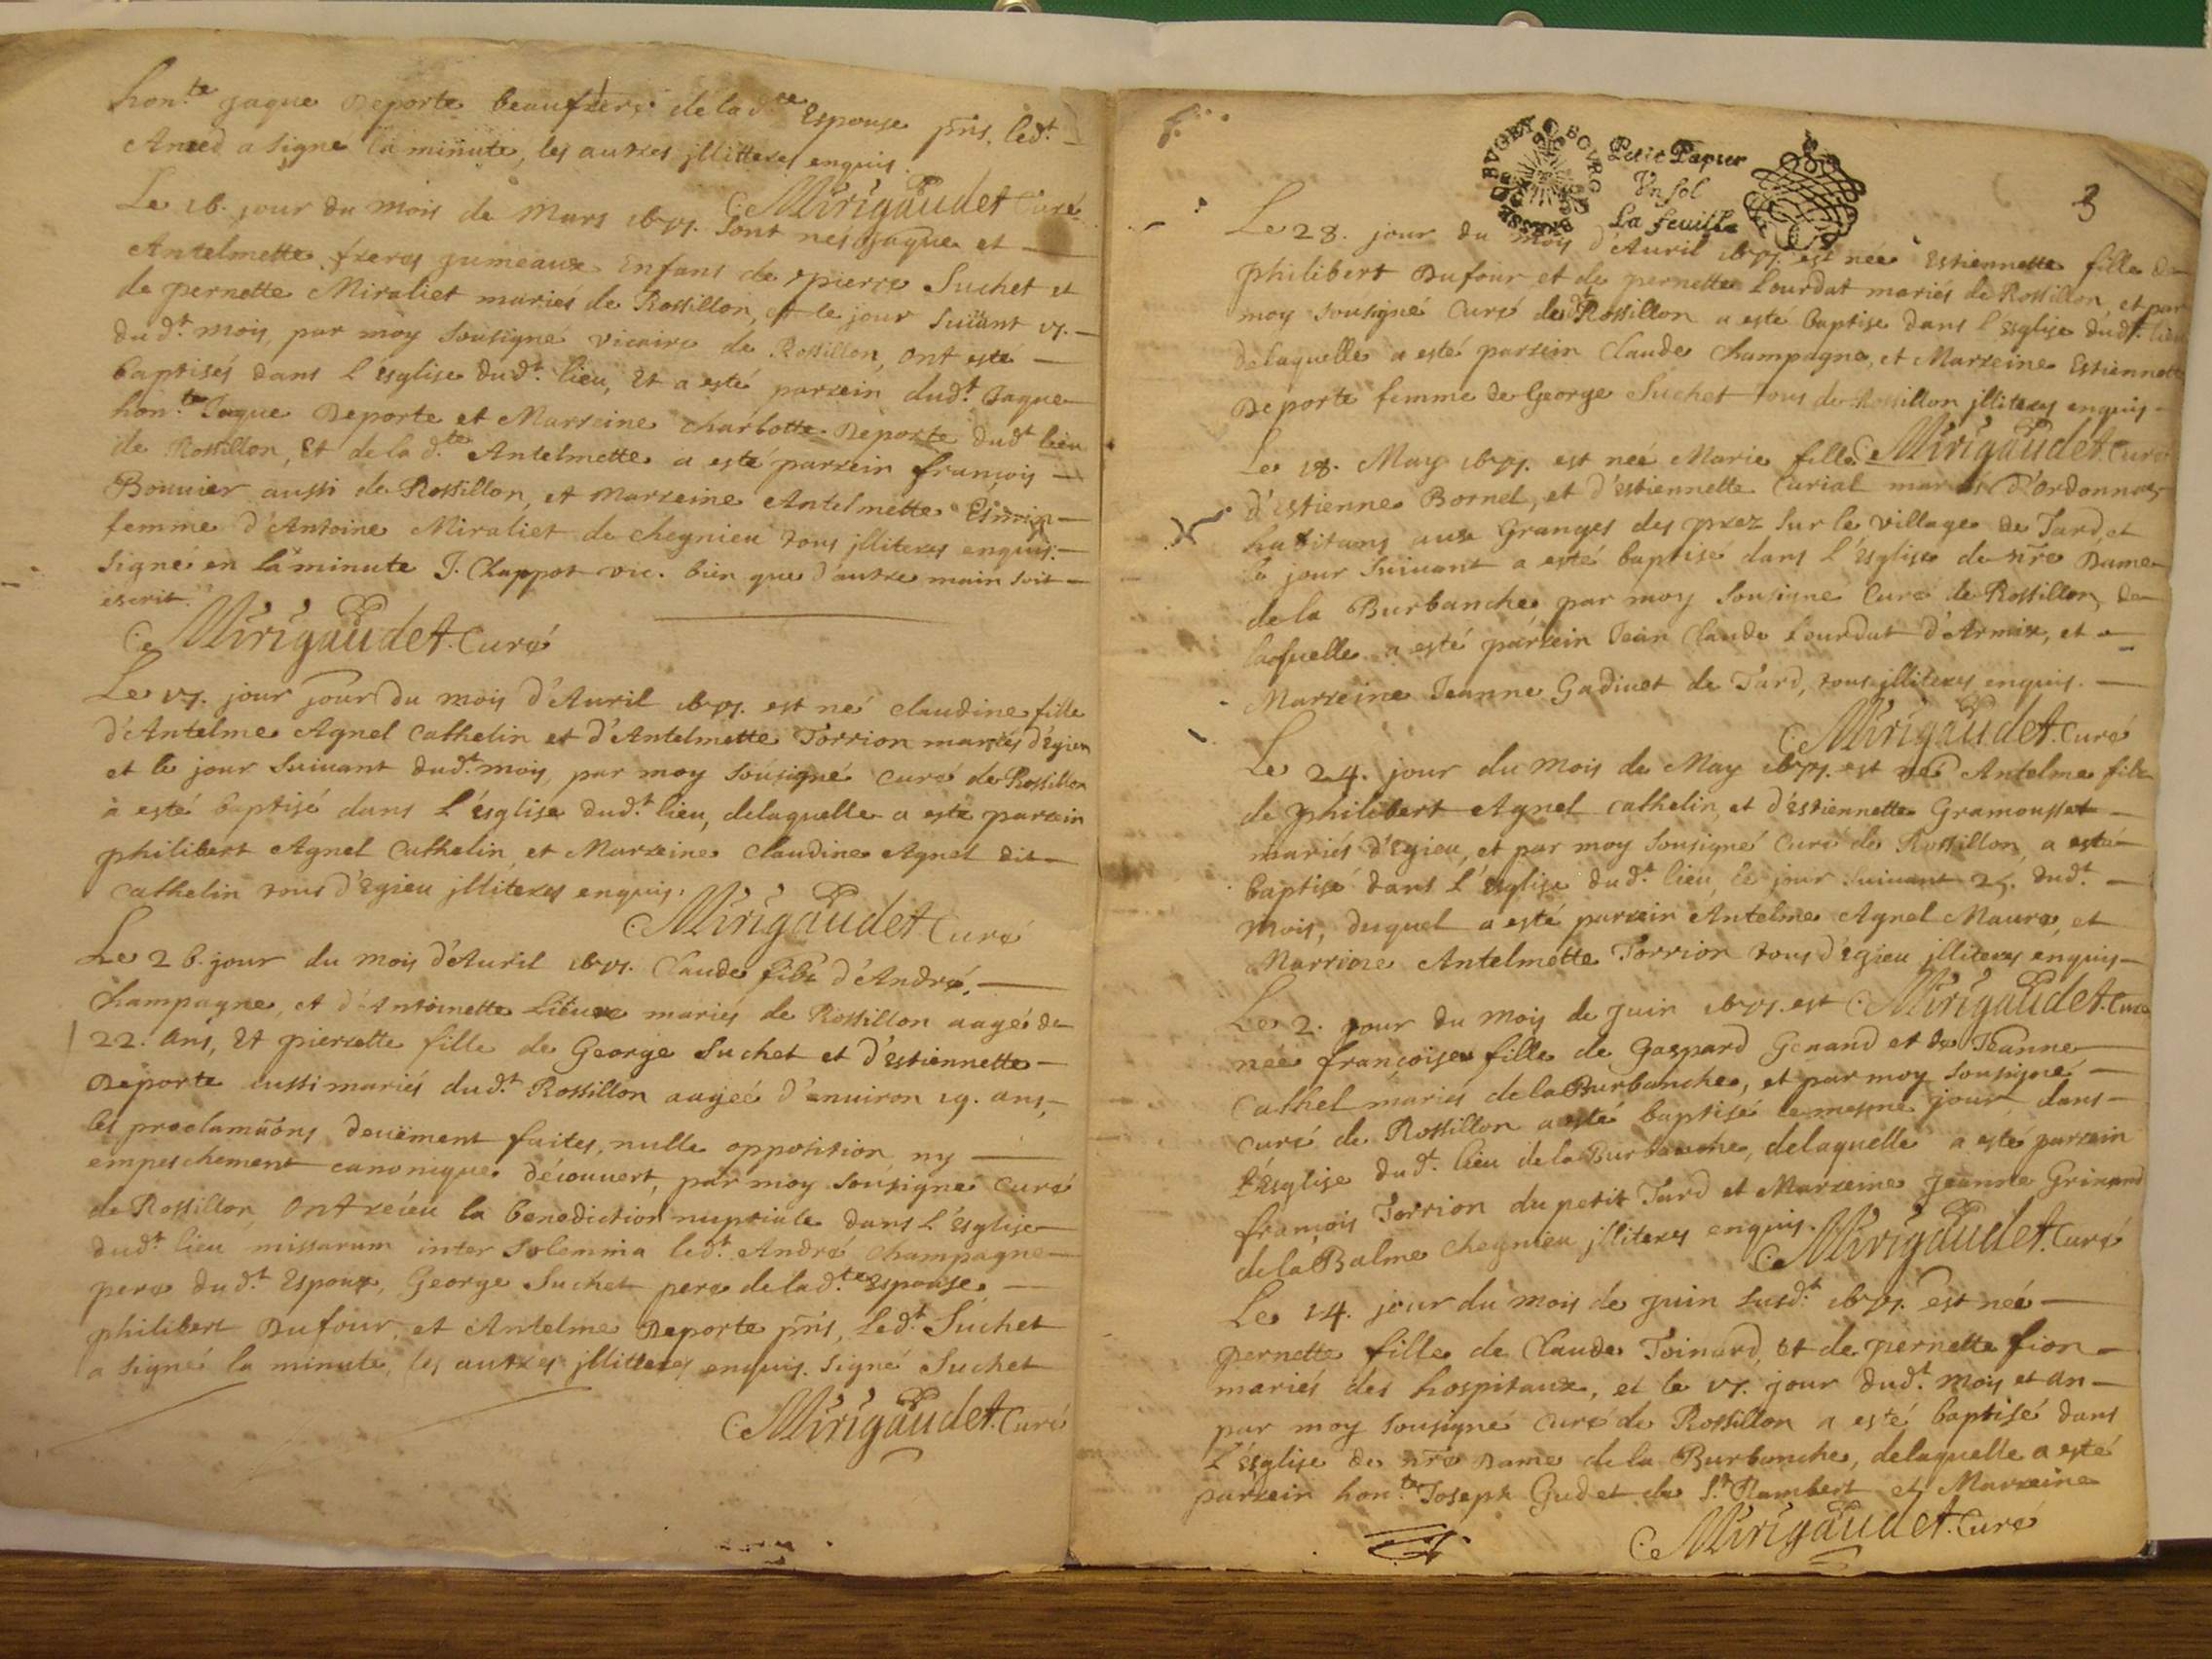 hon.te jaque Deporte beaufrere de lad.te Espouse pn̄s, led.t
Amed a signé la minute, les autres illitteres enquis.
C. Mirigaudet Curé
Le 16. jour du mois de Mars 1675. sont nes jaque et
Antelmette freres jumeaux Enfans de pierre Suchet et
de pernette Miraliet mariés de Rossillon, et le jour suiuant 17.
dud.t mois, par moy sousigné vicaire de Rossillon, ont esté
baptisés dans l'Esglise dud.t lieu, Et a esté parrein dud.t Jaque
hon.te Jaque Deporte et Marreine charlotte Deporte dud.t lieu
de Rossillon, Et de lad.te Antelmette a esté parrein françois
Bouuier aussi de Rossillon, et Marreine Antelmette
femme d'Antoine Miraliet de chegnieu tous illiteres enquis.
Signé en la minute J. Chappot vic. bien que d'autre main soit
escrit.
C. Mirigaudet. Curé
Le 17. jour jour du mois d'Auril 1675. est né claudine fille
d'Antelme Agnel Cathelin et d'Antelmette Torrion mariés d'Egieu
et le jour suiuant dud.t mois, par moy sousigné curé de Rossillon
a esté baptisé dans l'Esglise dud.t lieu, delaquelle a esté parrein
philibert Agnel Cathelin et Marreine Claudine Agnel dit
Cathelin tous d'Egieu illiteres enquis.
C. Mirigaudet Curé
Le 26. jour du mois d'Auril 1675. Claude filz d'André
Champagne, et d'Antoinette Lieure mariés de Rossillon aagé de
22. ans, Et pierrette fille de George Suchet et d'Estiennette
Deporte aussi mariés dud.t Rossillon aagée d'enuiron 19. ans,
les proclamaōns deuement faites, nulle opposition ny
empeschement canonique découuert, par moy sousigné curé
de Rossillon, ont recéu la benediction nuptiale dans l'Esglise
dud.t lieu missarum inter solemnia led.t André Champagne
pere dud.t Espoux, George Suchet pere de lad.te Espouse,
philibert Dufour, et Antelme Deporte pn̄s, Led.t Suchet
a signé la minute, les autres illitteres enquis. signé Suchet
C. Mirigaudet. Curé
BRESSE BVGEY BOVRG
Petit Papier
Vn sol
La feuille
3
Le 28. jour du moy d'Auril 1675. est née Estiennette fille de
philibert Dufour et de pernette Lourdat mariés de Rossillon, et par
moy sousigné Curé dud.t Rossillon a esté baptise dans l'Esglise dud.t lieu
delaquelle a esté parrein Claude Champagne, et Marreine Estiennette
Deporte femme de George Suchet tous de Rossillon illiteres enquis
C. Mirigaudet. Curé
Le 18. May 1675. est neé Marie fille
d'Estienne Bornel, et d'Estiennette Curial mariés d'Ordonnas
habitans aux Granges des prez sur le village de Tard, et
le jour suiuant a esté baptisé dans l'Esglise de nr̄e Dame
de la Burbanche par moy sousigné Curé de Rossillon, de
laquelle a esté parrein Jean Claude Lourdat d'Armix, et
Marreine Jeanne Gadiuet de Tard, tous illiteres enquis.
C. Mirigaudet. Curé
Le 24. jour du mois de May 1675. est né Antelme filz
de philibert Agnel Cathelin, et d'Estiennette Gramousset
mariés d'Egieu, et par moy sousigné Curé de Rossillon, a esté
baptisé dans l'Esglise dud.t lieu, le jour suiuant 25. dud.t
mois, duquel a esté parrein Antelme Agnel Maure, et
Marrine Antelmette Torrion tous d'Egieu illiteres enquis
C. Mirigaudet. Curé
Le 2. jour du mois de juin 1675. est
neé françoise fille de Gaspard Genand et de Jeanne
Cathel mariés de la Burbanche, et par moy sousigné
curé de Rossillon a esté baptisé le mesme jour dans
l'Esglise dud.t lieu de la Burbanche, delaquelle a esté parrein
françois Torrion du petit Tard et Marreine jeanne Grinand
de la Balme chegnieu illiteres enquis.
C. Mirigaudet. Curé
Le 14. jour du mois de juin susd.t 1675. est neé
pernette fille de Claude Toinard, et de pernette fion
mariés des hospitaux, et le 17. jour dud.t mois et an
par moy sousigné curé de Rossillon a esté baptisé dans
L'Esglise de nr̄e Dame de la Burbanche, delaquelle a esté
parrein hon.te Joseph Gudet de S.t Rambert et Marreine
C. Mirigaudet. Curé